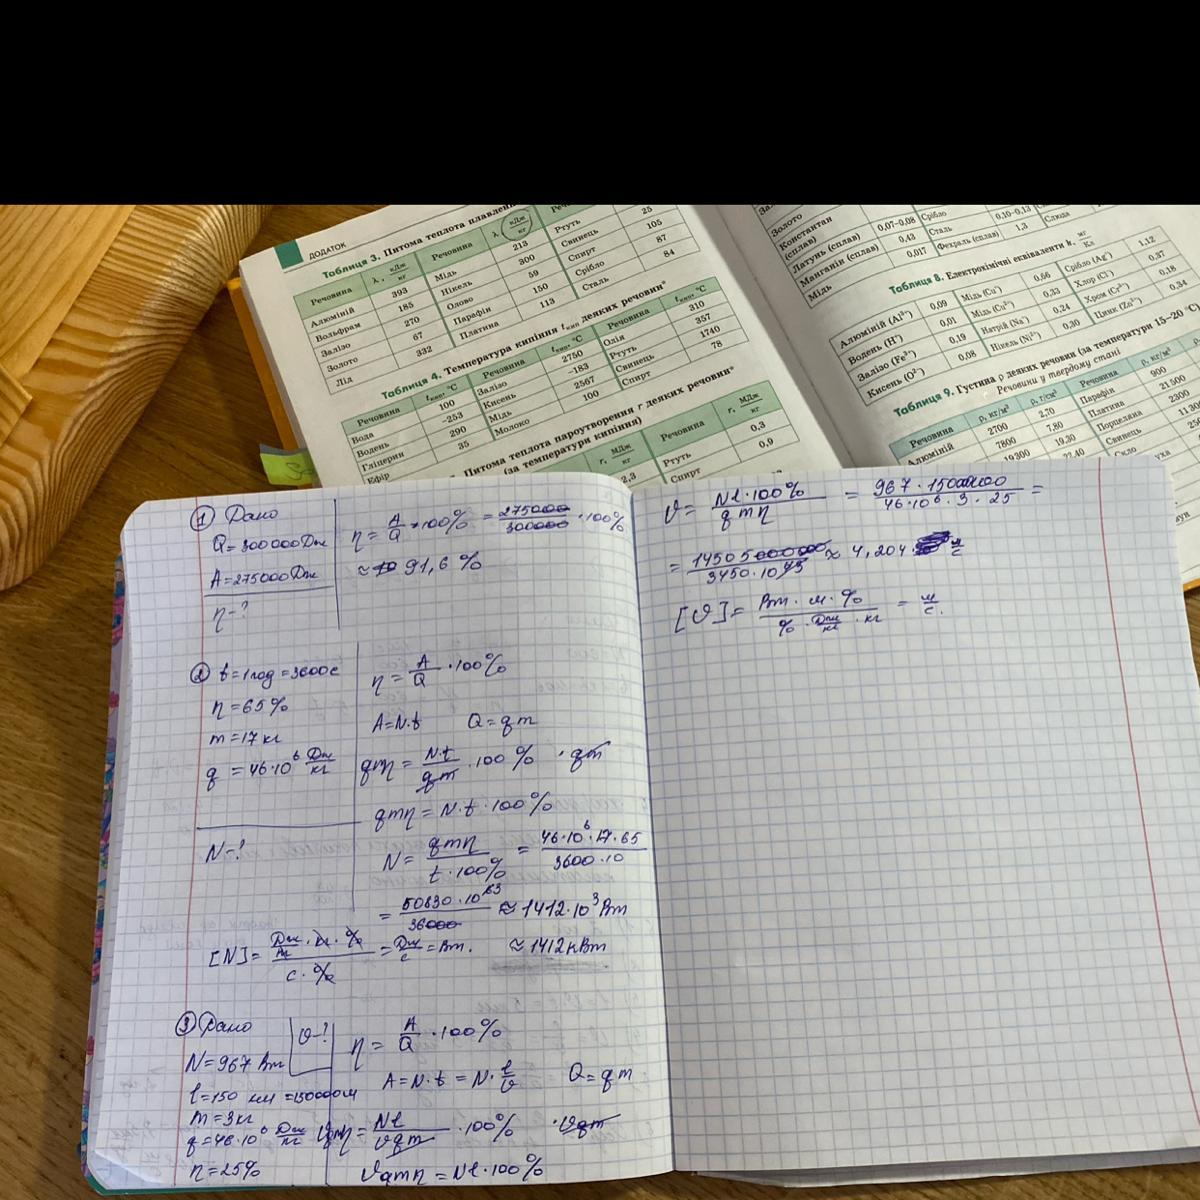 ДОДАТОК
Таблиця 3. Питома теплота плавлення
Речовина λ, кДж/кг Речовина λ, кДж/кг
Алюміній 393 Мідь 213 Ртуть
Вольфрам 185 Нікель 300 Свинець 25
Залізо 270 Олово 59 Спирт 105
Золото 67 Парафін 150 Срібло 87
Лід 332 Платина 113 Сталь 84
Таблиця 4. Температура кипіння tкип деяких речовин*
Речовина tкип, °C Речовина tкип, °C Речовина tкип, °C
Вода 100 Залізо 2750 Олія 310
Водень -253 Кисень -183 Ртуть 357
Гліцерин 290 Мідь 2567 Свинець 1740
Ефір 35 Молоко 100 Спирт 78
Питома теплота пароутворення r деяких речовин*
(за температури кипіння)
r, МДж/кг Речовина r, МДж/кг
2,3 Ртуть 0,3
Спирт 0,9
Золото
Константан (сплав)
Латунь (сплав) 0,07–0,08 Срібло
Манганін (сплав) 0,43 Сталь 0,10–0,13 Слюда
Мідь 0,017 Фехраль (сплав) 1,3
Таблиця 8. Електрохімічні еквіваленти k, мг/Кл
Алюміній (Al³⁺) 0,09 Мідь (Cu⁺) 0,66 Срібло (Ag⁺) 1,12
Водень (H⁺) 0,01 Мідь (Cu²⁺) 0,33 Хлор (Cl⁻) 0,37
Залізо (Fe³⁺) 0,19 Натрій (Na⁺) 0,24 Хром (Cr³⁺) 0,18
Кисень (O²⁻) 0,08 Нікель (Ni²⁺) 0,30 Цинк (Zn²⁺) 0,34
Таблиця 9. Густина ρ деяких речовин (за температури 15–20 °C
Речовини у твердому стані
Речовина ρ, кг/м³ ρ, г/см³ Речовина ρ, кг/м³
Алюміній 2700 2,70 Парафін 900
7800 7,80 Платина 21 500
19 300 19,30 Порцеляна 2300
Свинець
Скло
① Дано
Q=300000Дж
A=275000Дж
η-?
η = A/Q · 100% = 275000/300000 · 100%
≈ 91,6 %
② t=1год=3600с
η=65%
m=17кг
q =46·10⁶ Дж/кг
N-?
η = A/Q · 100%
A=N·t Q=qm
qmη = N·t/qm · 100 % · qm
qmη = N·t·100%
N = qmη/t·100% = 46·10⁶·17·65/3600·10
= 50830·10³/36000 ≈ 1412·10³ Вт
[N]= Дж/кг·кг·%/с·% = Дж/с = Вт. ≈ 1412кВт
③ Дано
N=967 Вт
l=150 км =150000м
m=3кг
q=46·10⁶ Дж/кг
η=25%
ϑ-?
η = A/Q · 100%
A=N·t = N· l/ϑ Q=qm
ϑqmη = Nl/ϑqm · 100% · ϑqm
ϑqmη = Nl·100%
ϑ= Nl·100%/qmη = 967·150000·100/46·10⁶·3·25 =
= 14505000000/3450·10⁶ ≈ 4,204 м/с
[ϑ]= Вт·м·%/%·Дж/кг·кг = м/с.